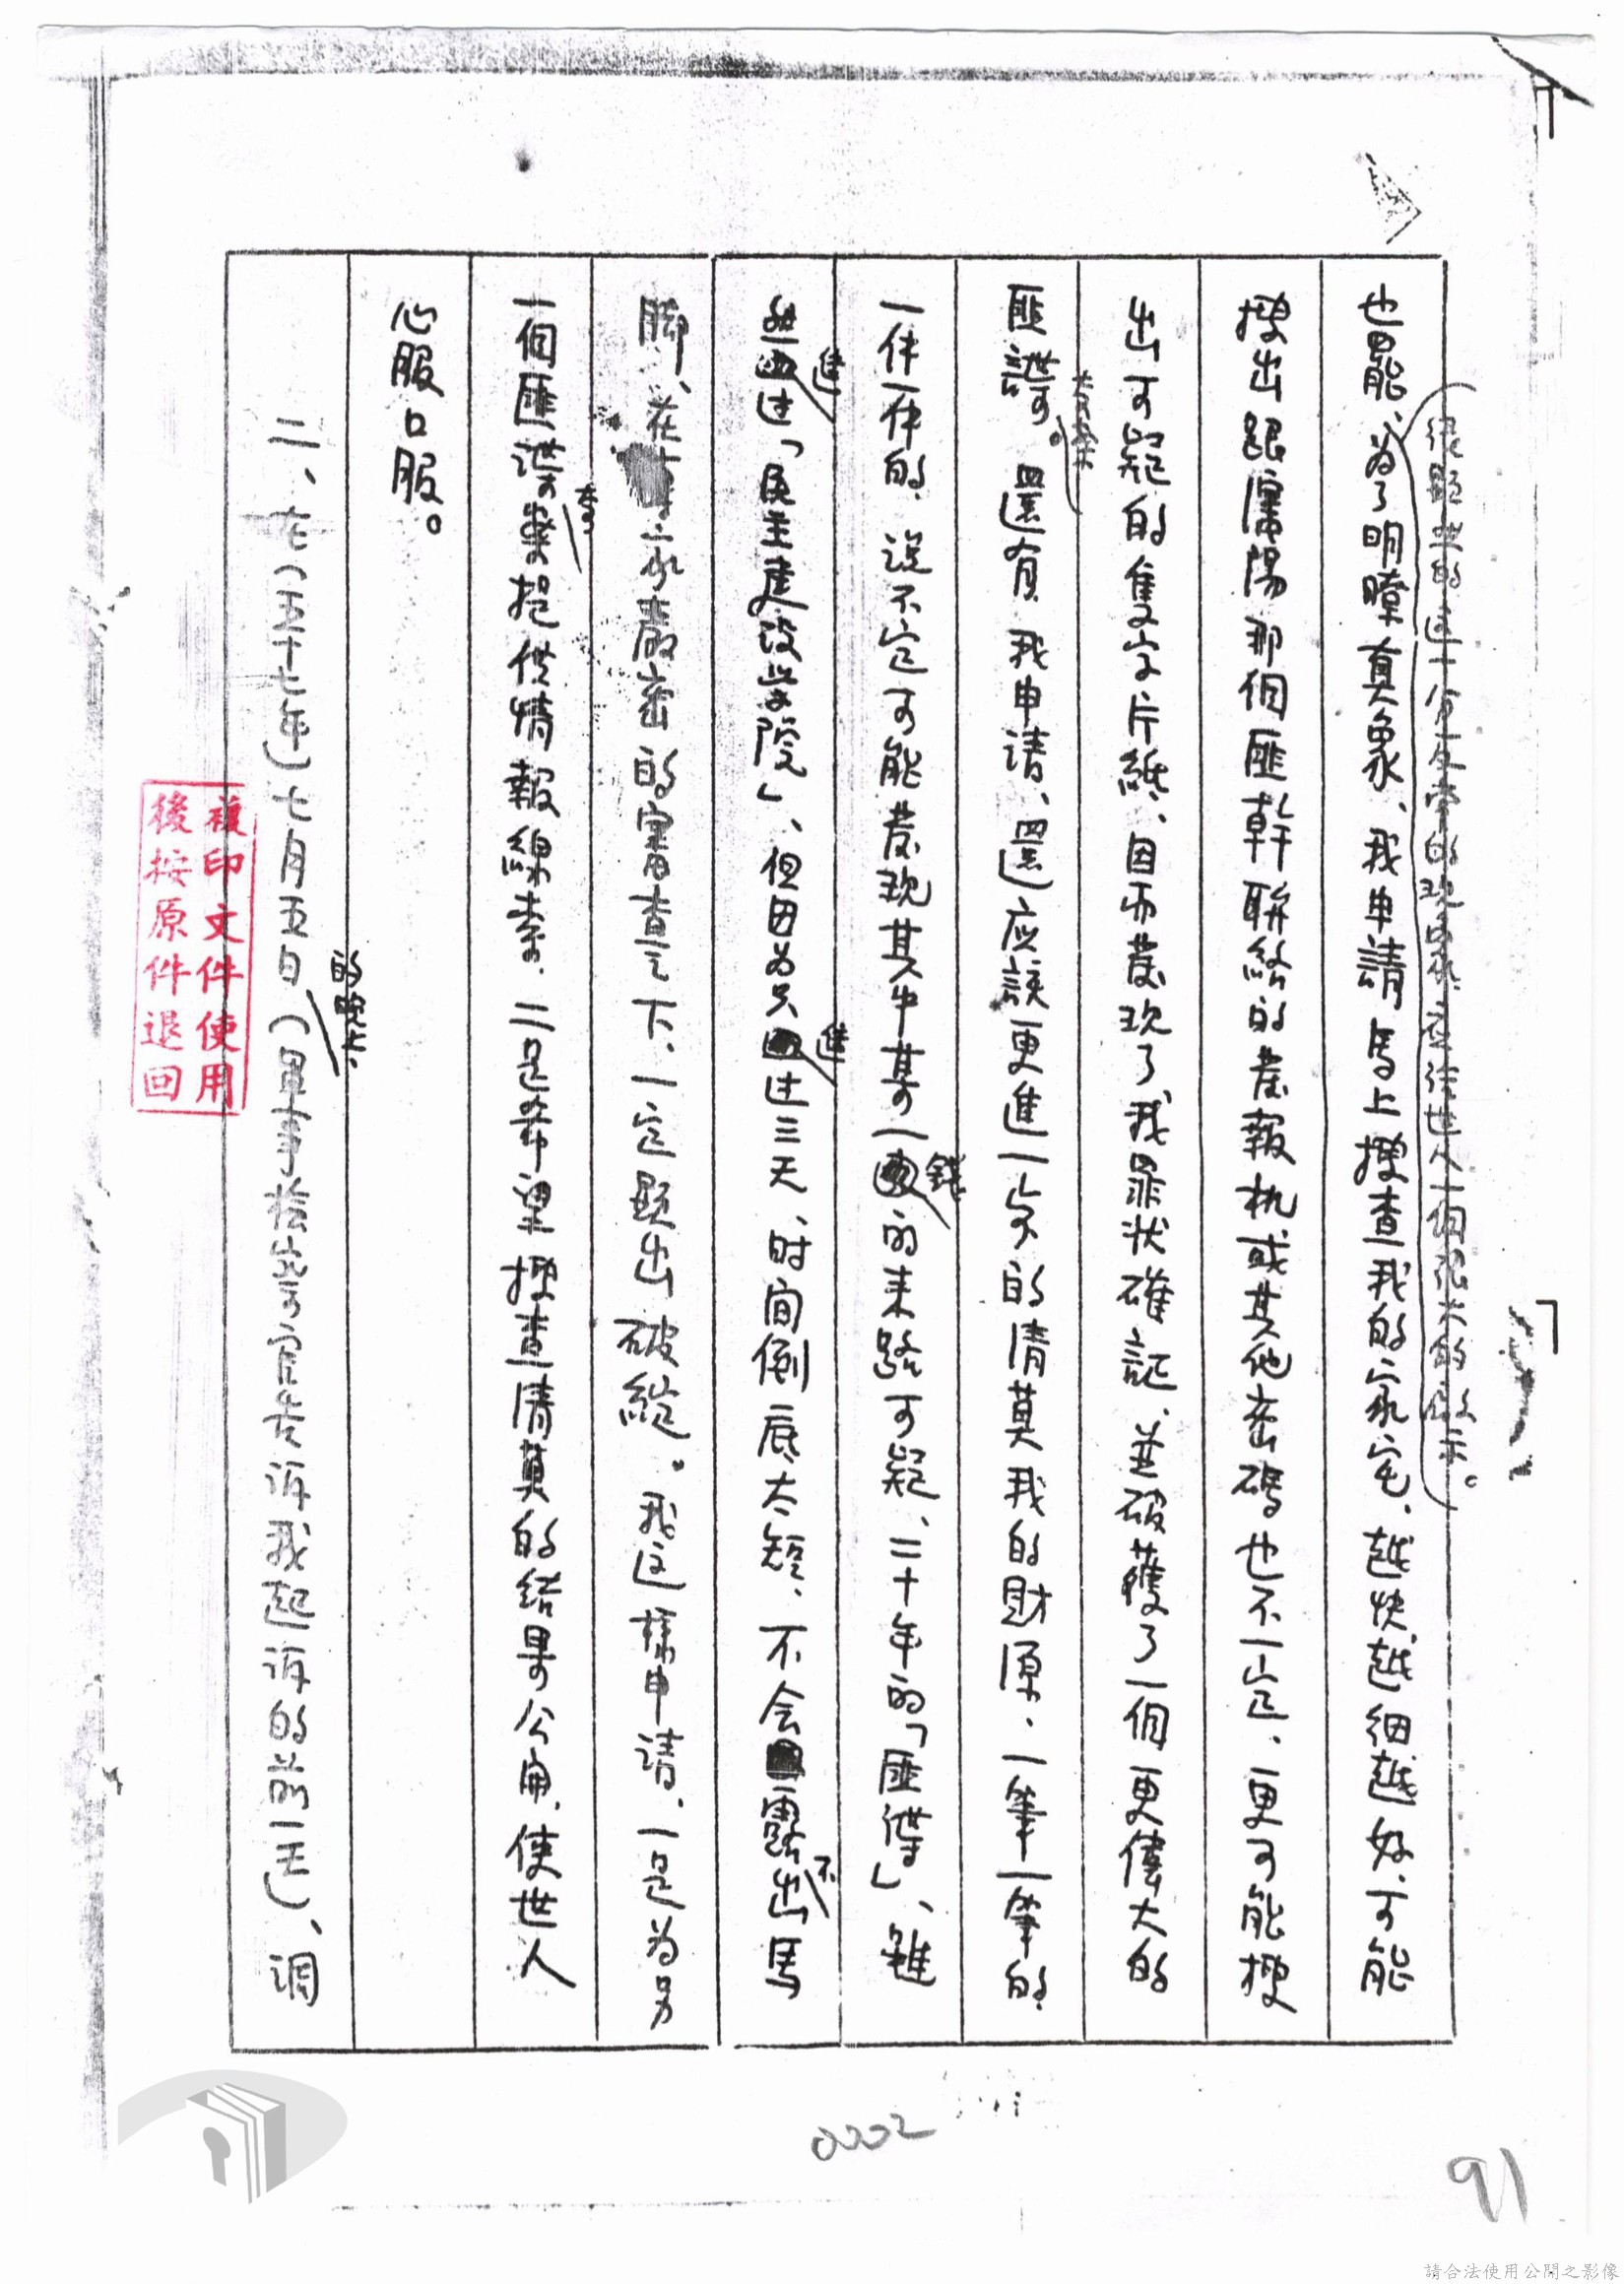 很顯然的這十分反常的現象、應該進入一個很大的啟示。
也罷、為了明瞭真象、我申請馬上搜查我的家宅、越快越細越好、可能
搜出跟瀋陽那個匪幹聯絡的發報机或其他密碼也不一定、更可能搜
出可疑的隻字片紙、因而發現了我罪狀確証、並破獲了一個更偉大的
匪諜大案。還有我申請、還应該更進一步的清算我的財源、一筆一筆的、
一件一件的、說不定可能發現其中某一錢的来路可疑、二十年的「匪諜」、雖
然進过「民主建設学院」、但因為只進过三天、时间倒底太短、不会不露出馬
脚、在 嚴密的審查之下、一定顯出破綻。我这樣申请、一是为另
一個匪諜李案提供情報線索、二是希望搜查清算的結果公佈、使世人
心服口服。
二、在(五十七年)七月五日的晚上(軍事檢察官告诉我起诉的前一天)、調
複印文件使用
後按原件退回
0002
91
請合法使用公開之影像